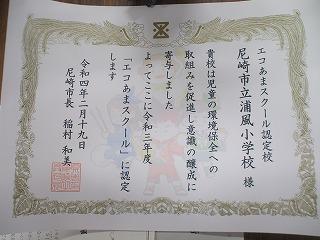 エコあまスクール認定校
尼崎市立浦風小学校 様
貴校は児童の環境保全への
取組みを促進し意識の醸成に
寄与しました
よってここに令和三年度
「エコあまスクール」に認定
します
令和四年二月十九日
尼崎市長 稲村 和美